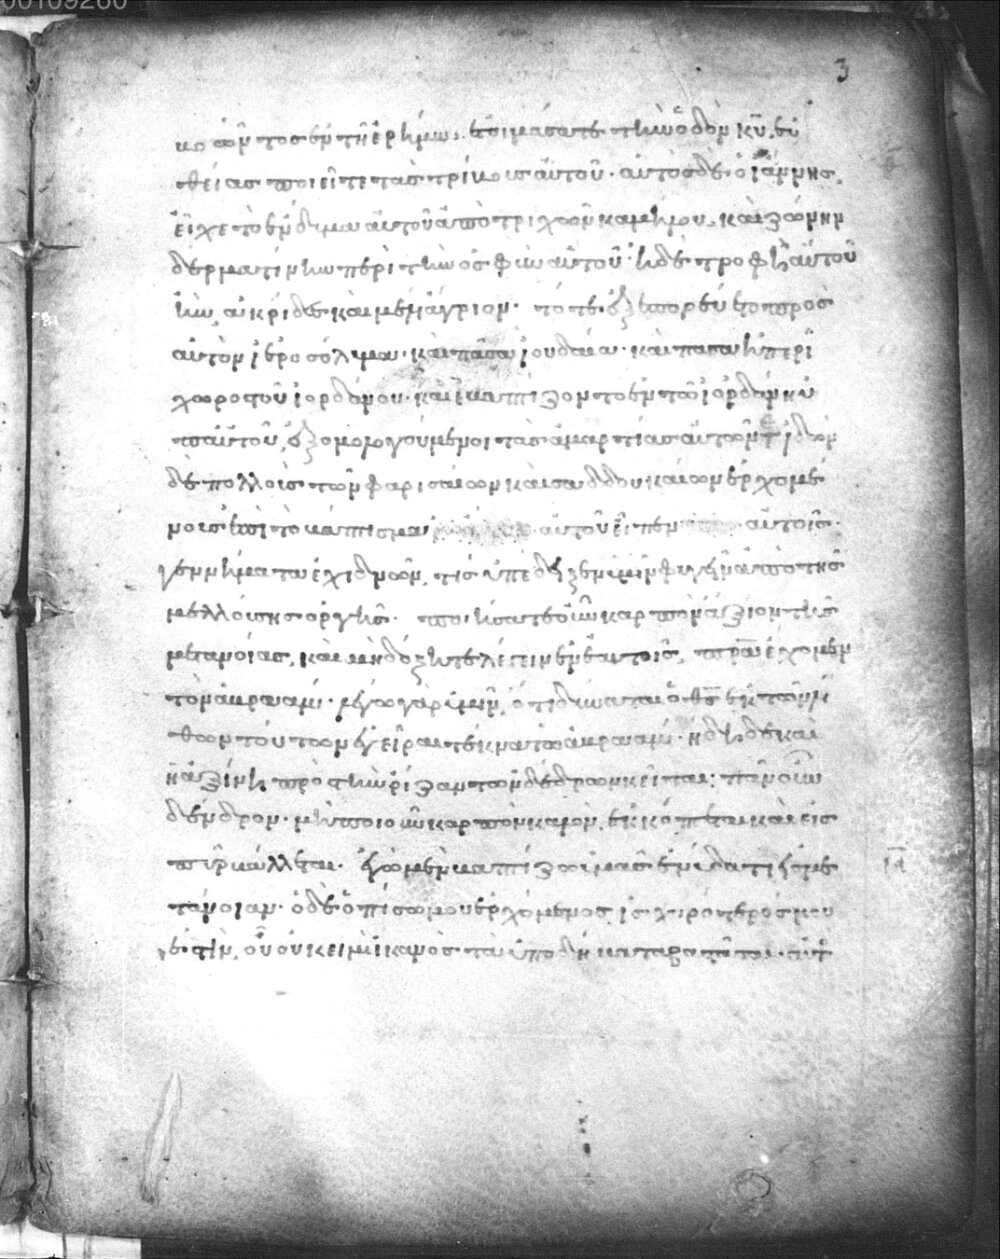 00109260
3
βοῶντος ἐν τῆ ἐρήμω. ἑτοιμάσατε τὴν ὁδὸν κ̅υ̅. εὐ
θείας ποιεῖτε τὰς τρίβους αὐτοῦ. αὐτὸς δὲ ὁ ἰωάννης
εἶχε τὸ ἔνδυμα αὐτοῦ ἀπὸ τριχῶν καμήλου. καὶ ζώνην
δερματίνην περὶ τὴν ὀσφὺν αὐτοῦ. ἡ δὲ τροφὴ αὐτοῦ
ἦν ἀκρίδες καὶ μέλι ἄγριον. τότε ἐξεπορεύετο πρὸς
αὐτὸν ἱεροσόλυμα. καὶ πᾶσα ἰουδαία. καὶ πᾶσα ἡ περί
χωρος τοῦ ἰορδάνου. καὶ ἐβαπτίζοντο ἐν τῶ ἰορδάνη ὑ
π αὐτοῦ ἐξομολογούμενοι τὰς ἁμαρτίας αὐτῶν ἰδὼν
δὲ πολλοὺς τῶν φαρισαίων καὶ σαδδουκαίων ἐρχομέ
νους ἐπὶ τὸ βάπτισμα αὐτοῦ εἶπεν αὐτοῖς.
γεννήματα ἐχιδνῶν, τίς ὑπέδειξεν ὑμῖν φυγεῖν ἀπὸ τῆς
μελλούσης ὀργῆς. ποιήσατε οὖν καρπὸν ἄξιον τῆς
μετανοίας, καὶ μὴ δόξητε λέγειν ἐν ἑαυτοῖς, π̅ρ̅α̅ ἔχομεν
τὸν ἀβραάμ. λέγω γὰρ ὑμῖν, ὅτι δύναται ὁ θ̅σ̅ ἐκ τῶν λί
θων τούτων ἐγεῖραι τέκνα τῶ ἀβραάμ. ἤδη δὲ καὶ
ἡ ἀξίνη πρὸς τὴν ῥίζαν τῶν δένδρων κεῖται. πᾶν οὖν
δένδρον. μὴ ποιοῦν καρπὸν καλὸν, ἐκκόπτεται καὶ εἰς
πῦρ βάλλεται. ἐγὼ μὲν βαπτίζω ὑμᾶς ἐν ὕδατι εἰς με
τάνοιαν. ὁ δὲ ὀπίσω μου ἐρχόμενος ἰσχυρότερός μου
ἐστὶν, οὗ οὐκ εἰμὶ ἱκανὸς τὰ ὑποδήματα βαστάσαι.